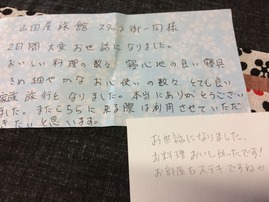 山田屋旅館 スタッフ御一同様
2日間大変お世話になりました。
おいしい料理の数々 寝心地の良い寝具
きめ細やかなお心使いの数々 とても良い
家族旅行となりました。本当にありがとうござい
ました。またこちらに来る際は利用させていただ
きたいと思います。
お世話になりました。
お料理おいしかったです!
お部屋もステキですね